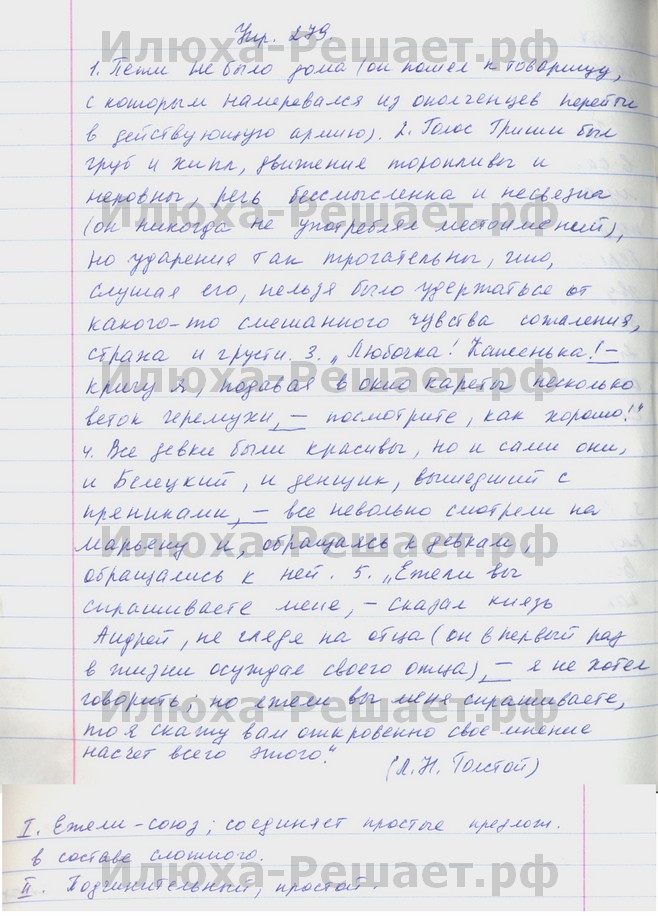 Упр. 279
1. Пети не было дома (он пошел к товарищу,
с которым намеревался из ополченцев перейти
в действующую армию). 2. Голос Гриши был
груб и хипл, движения торопливы и
неровны, речь бессмысленна и несвязна
(он никогда не употреблял местоимений),
но ударения так трогательны, что,
слушая его, нельзя было удержаться от
какого-то смешанного чувства сожаления,
страха и грусти. 3. „Любочка! Катенька! –
кричу я, подавая в окно кареты несколько
веток черемухи, – посмотрите, как хорошо!"
4. Все девки были красивы, но и сами они,
и Белецкий, и денщик, вышедший с
пряниками, – все невольно смотрели на
Марьяну и, обращаясь к девкам,
обращались к ней. 5. „Ежели вы
спрашиваете меня, – сказал князь
Андрей, не глядя на отца (он в первый раз
в жизни осуждал своего отца), – я не хотел
говорить; но ежели вы меня спрашиваете,
то я скажу вам откровенно свое мнение
насчет всего этого".
(Л.Н. Толстой)
I. Ежели – союз; соединяет простые предлож.
в составе сложного.
II. Подчинительный, простой.
Илюха-Решает.рф
Илюха-Решает.рф
Илюха-Решает.рф
Илюха-Решает.рф
Илюха-Решает.рф
Илюха-Решает.рф
Илюха-Решает.рф
Илюха-Решает.рф
Илюха-Решает.рф
Илюха-Решает.рф